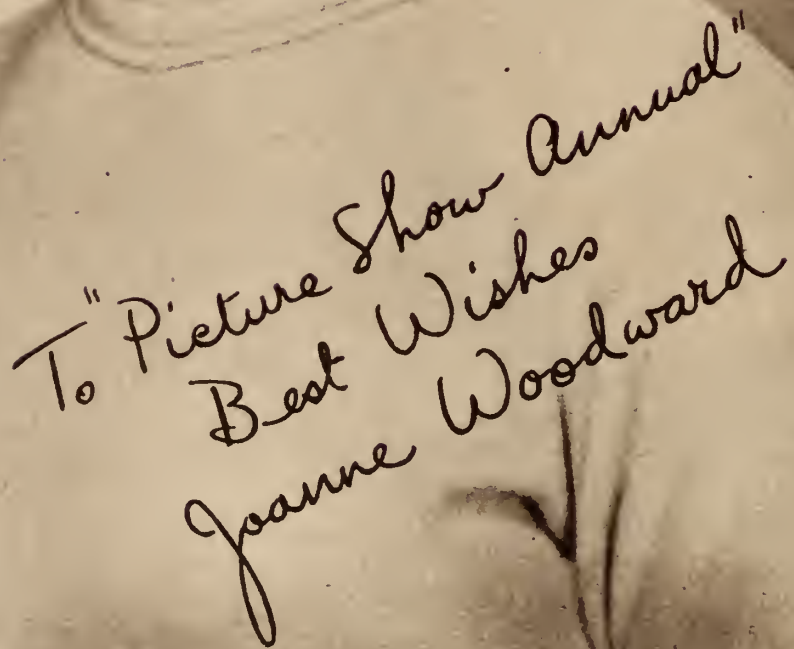 To "Picture Show Annual"
Best Wishes
Joanne Woodward